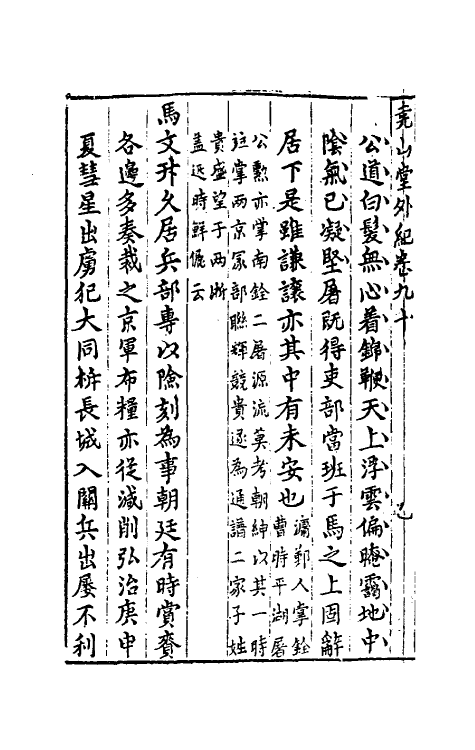 堯山堂外紀卷九十
公道白髮無心着錦鞭天上浮雲偏晻靄地中
陰氣已凝堅屠既得吏部當班于馬之上固辭
居下是雖謙讓亦其中有未安也
滽鄞人掌銓
曹時平湖屠
公勳亦掌南銓二屠源流莫考朝紳以其一時
竝掌兩京冢部聯輝競貴遂為通譜二家子姓
貴盛望于兩浙
盖近時鮮儷云
馬文升久居兵部專以陰刻為事朝廷有時賞賚
各邊多奏裁之京軍布糧亦從減削弘治庚申
夏彗星出虜犯大同拆長城入關兵出屢不利